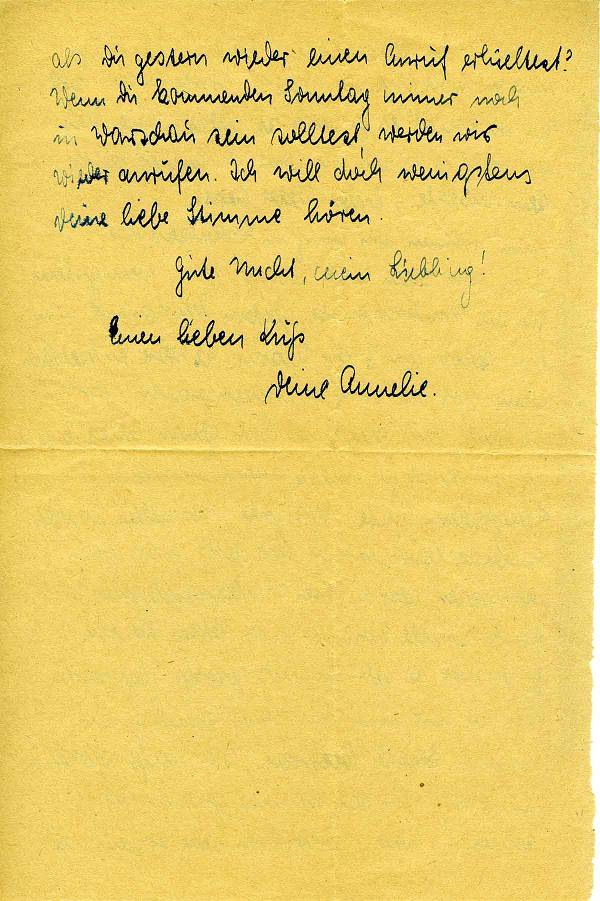 als Du gestern wieder einen Anruf erhieltest?
Wenn du kommenden Sonntag immer noch
in Warschau sein solltest, werden wir
wieder anrufen. Ich will doch wenigstens
deine liebe Stimme hören.
Gute Nacht, mein Liebling!
Einen lieben Kuß
Deine Annelie.